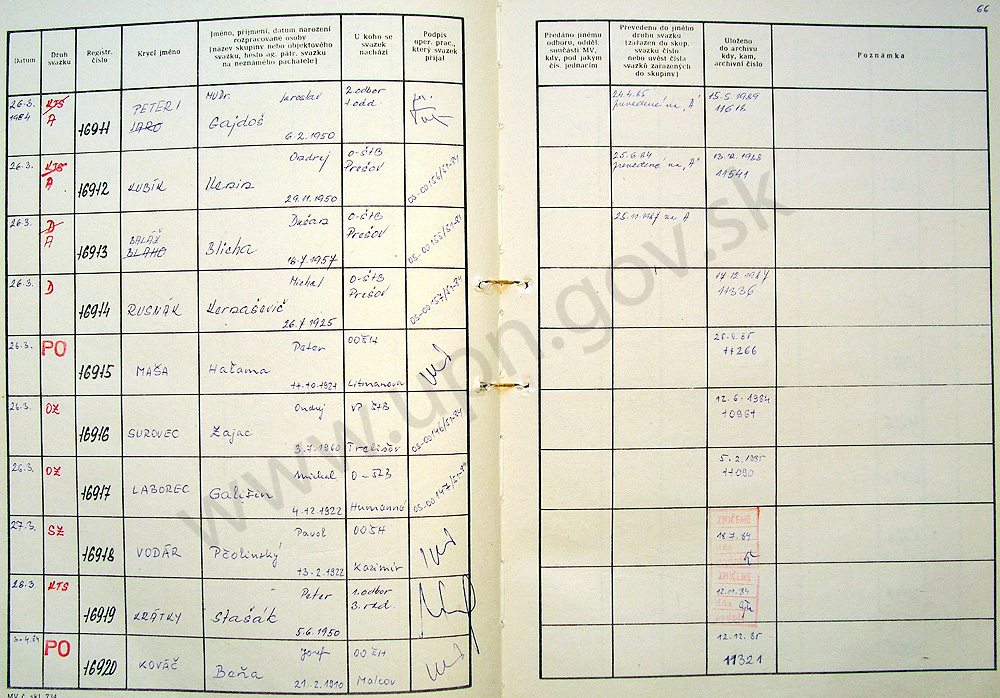 66
Datum
Druh
svazku
Registr.
číslo
Krycí jméno
Jméno, příjmení, datum narození
rozpracované osoby
(název skupiny nebo objektového
svazku, heslo ag. pátr. svazku
na neznámého pachatele)
U koho se
svazek
nachází
Podpis
oper. prac.,
který svazek
přijal
Předáno jinému
odboru, odděl.
součásti MV,
kdy, pod jakým
čís. jednacím
Převedeno do jiného
druhu svazku
(zařazen do skup.
svazku číslo
nebo uvést čísla
svazků zařazených
do skupiny)
Uloženo
do archivu
kdy, kam,
archivní číslo
Poznámka
26.3. 1984 KTS A 16911 PETERI JARO MUDr. Jaroslav Gajdoš 6.2.1950 2.odbor 1.odd.
24.4.85 prevedené na "A" 15.5.1989 11618
26.3. KTS A 16912 KUBÍK Ondrej 29.11.1950 O-ŠtB Prešov OS-00156/51-84
25.6.84 prevedené na "A" 13.12.1988 11541
26.3. D A 16913 BALÁŽ BLAHO Dušan Blicha 18.7.1957 O-ŠtB Prešov OS-00155/51-84
25.11.1987 na A
26.3. D 16914 RUSNÁK Michal 26.7.1925 O-ŠtB Prešov OS-00157/51-84
17.12.1987 11336
26.3. PO 16915 MAŠA Peter Haťama 11.10.1921 OOČH Litmanová
25.2.85 11266
26.3. OZ 16916 SUROVEC Ondrej Zajac 3.7.1960 VP ŠtB Trebišov OS-00146/51-84
12.6.1984 10961
26.3. OZ 16917 LABOREC Michal 4.12.1922 O-ŠZB Humenné OS-00147/51-84
5.2.1985 11090
27.3. SZ 16918 VODÁR Pavol Ptolinský 13.2.1922 OOŠH Kazimír
ZNIČENÉ 18.7.84
26.3 KTS 16919 KRÁTKY Peter Stašák 5.6.1950 1.odbor 3. rád.
ZNIČENÉ 12.11.84 dňa
3-4.84 PO 16920 KOVÁČ Jozef Beňa 21.2.1910 OOČH Malcov
12.12.85 11321
MV č. skl. 734
www.upn.gov.sk